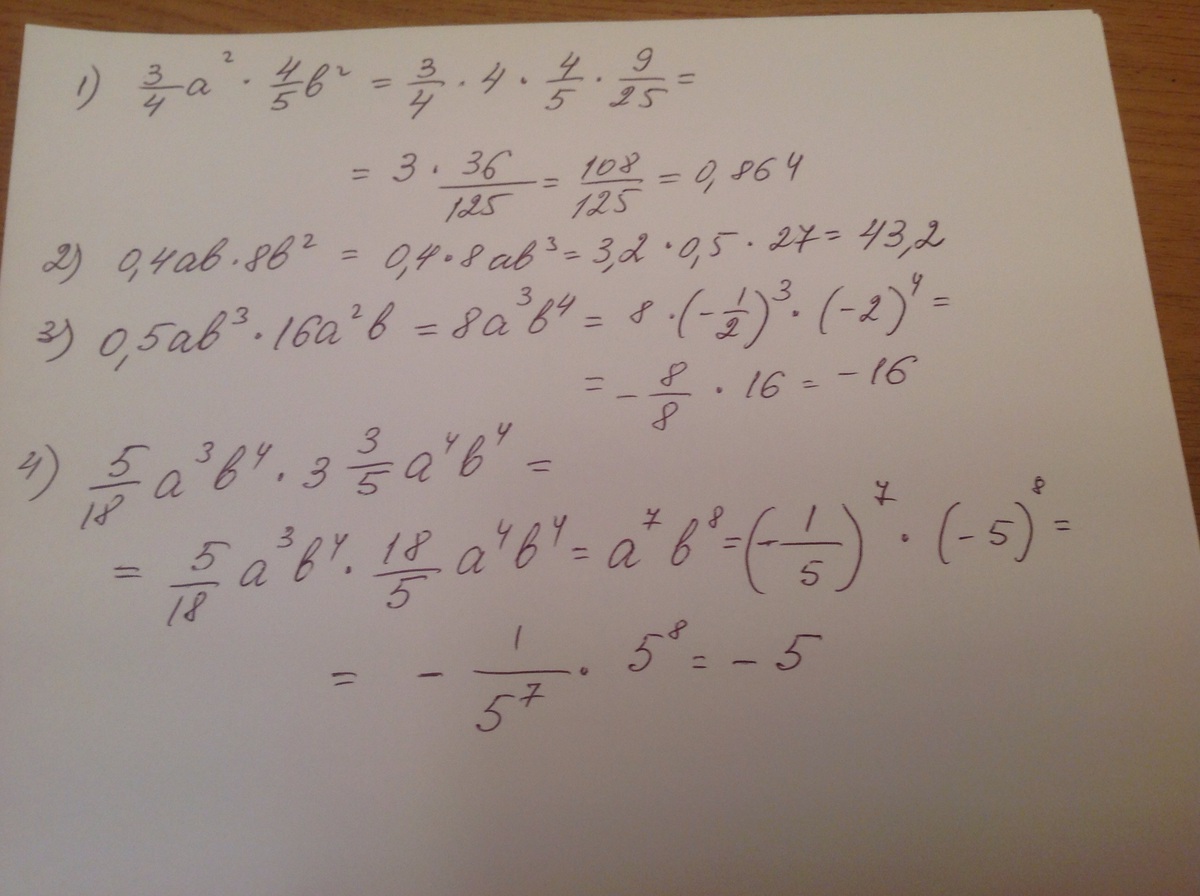 1) 3/4 a² · 4/5 b² = 3/4 · 4 · 4/5 · 9/25 =
= 3 · 36/125 = 108/125 = 0,864
2) 0,4ab · 8b² = 0,4 · 8ab³ = 3,2 · 0,5 · 27 = 43,2
3) 0,5ab³ · 16a²b = 8a³b⁴ = 8 · (-1/2)³ · (-2)⁴ =
= - 8/8 · 16 = -16
4) 5/18 a³b⁴ · 3 3/5 a⁴b⁴ =
= 5/18 a³b⁴ · 18/5 a⁴b⁴ = a⁷b⁸ = (-1/5)⁷ · (-5)⁸ =
= - 1/5⁷ · 5⁸ = -5